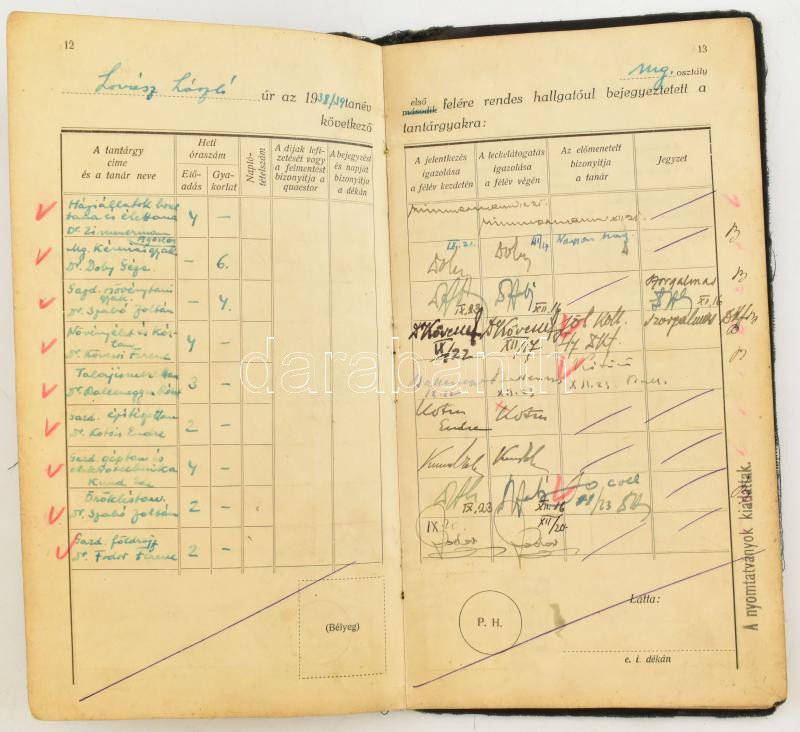 12
Lovász László úr az 1938/39 tanév
következő
A tantárgy
címe
és a tanár neve
Heti
óraszám
Elő-
adás
Gya-
korlat
Napló-
tételszám
A díjak lefi-
zetését vagy
a felmentést
bizonyítja a
quaestor
A bejegyzést
és napját
bizonyítja
a dékán
Háziállatok bonc
tana és élettana
Dr. Zimmermann
Ágoston
4 –
Mg. Kémiai gyak.
Dr. Doby Géza
– 6.
Gazd. növénytani
gyak.
Dr. Szabó Zoltán
– 4.
Növényélet és Kór-
tan
Dr. Kövessi Ferenc
4 –
Talajismeret
3 –
Gazd. építészettan
Dr. Kotsis Endre
2 –
Gazd. géptan és
elektrotechnika
Kund Ede
4 –
Örökléstan
Dr. Szabó Zoltán
2 –
Gazd. földrajz
Dr. Fodor Ferenc
2 –
(Bélyeg)
13
mg. osztály
első
második felére rendes hallgatóul bejegyeztetett a
tantárgyakra:
A jelentkezés
igazolása
a félév kezdetén
A leckelátogatás
igazolása
a félév végén
Az előmenetelt
bizonyítja
a tanár
Jegyzet
Zimmermann
Zimmermann XII. 21.
Doby
Doby
IX. 23
XII. 16
Szorgalmas
XII. 16
Dr Kövessi
IX/22
Dr Kövessi
XII/17
Jól Koll.
Szorgalmas
XII. 23
Kotsis
Endre
Kotsis
Kund Ede
Kund Ede
IX. 23
XII. 16
Jó coll
IX. 20.
Fodor
XII/20.
Fodor
P. H.
Látta:
e. i. dékán
A nyomtatványok kiadattak.
darabanth